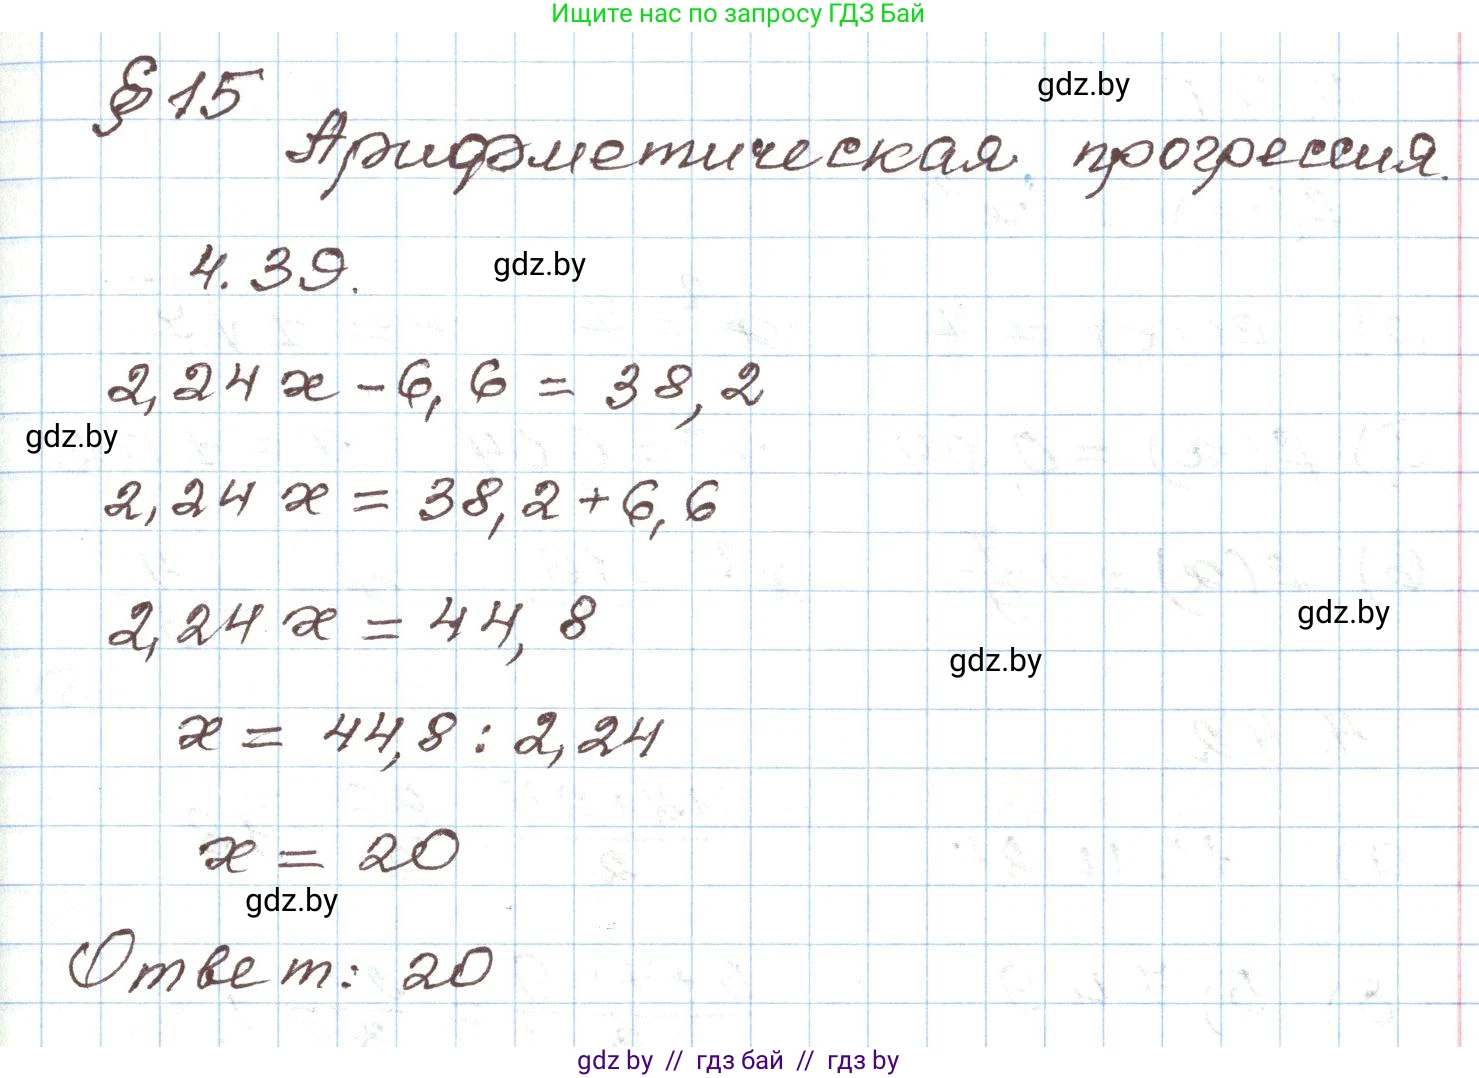 Ищите нас по запросу ГДЗ Бай
§ 15
gdz.by
Арифметическая прогрессия.
4.39.
gdz.by
2,24 x - 6,6 = 38,2
gdz.by
2,24 x = 38,2 + 6,6
2,24 x = 44,8
gdz.by
gdz.by
x = 44,8 : 2,24
x = 20
gdz.by
Ответ: 20
gdz by // гдз бай // гдз by